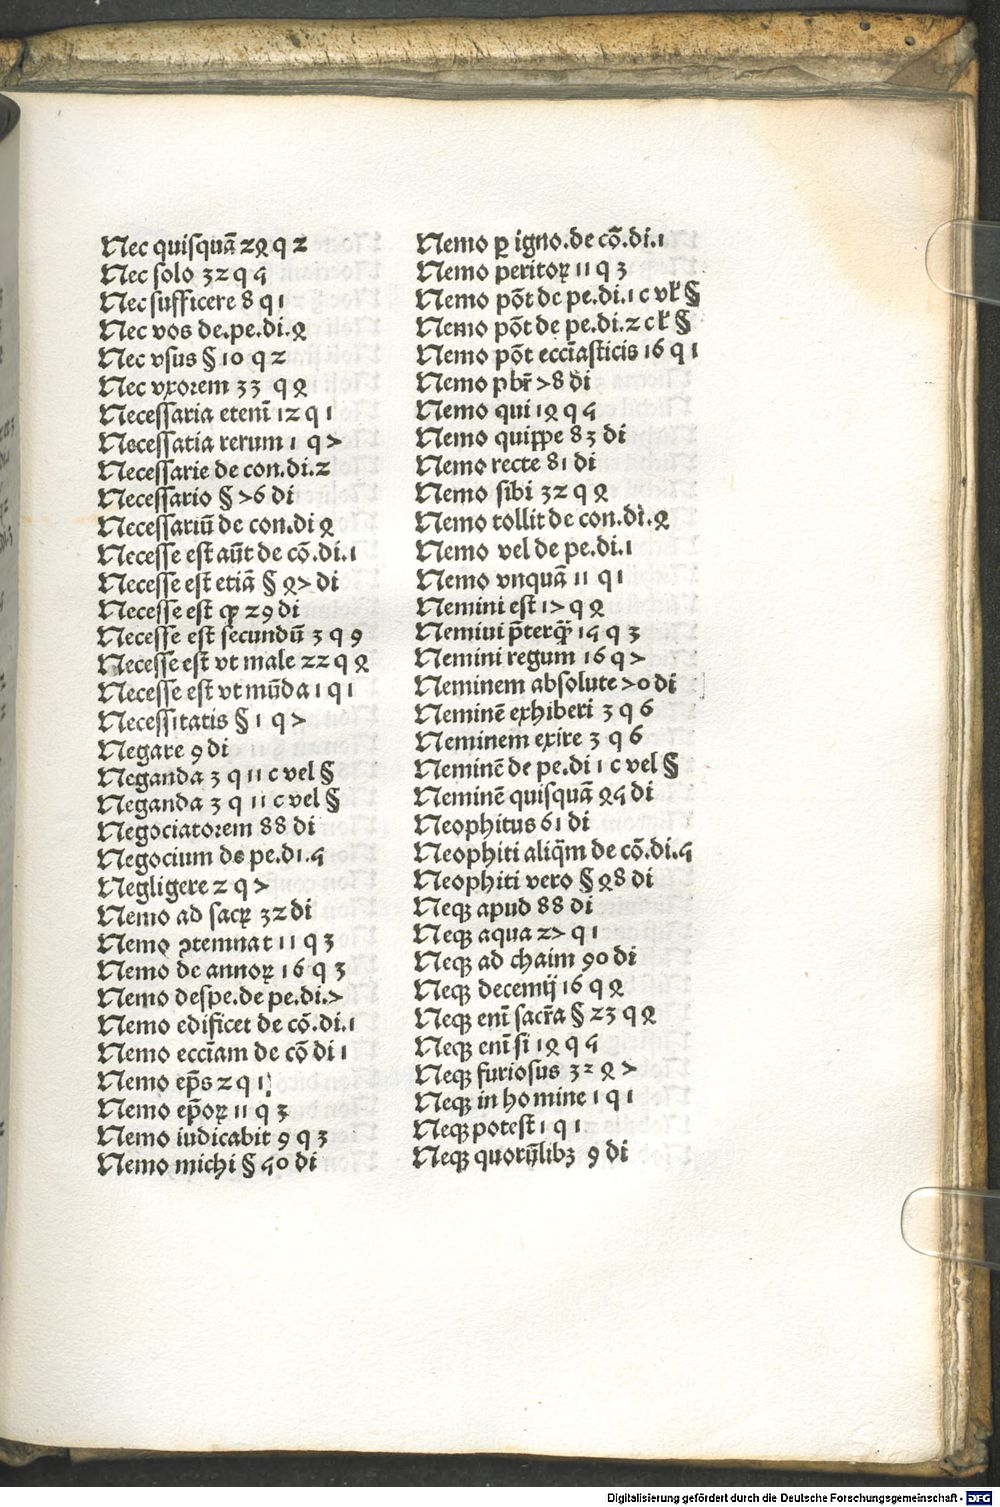 Nec quisquā 24 q 2
Nec solo 32 q 5
Nec sufficere 8 q 1
Nec vos de.pe.di.4
Nec vsus § 10 q 2
Nec vxorem 33 q 4
Necessaria etenī 12 q 1
Necessatia rerum 1 q 7
Necessarie de con.di.2
Necessario § 76 di
Necessariū de con.di 4
Necesse est aūt de cō.di.1
Necesse est etiā § 47 di
Necesse est ꝙ 29 di
Necesse est secundū 3 q 9
Necesse est vt male 22 q 4
Necesse est vt mūda 1 q 1
Necessitatis § 1 q 7
Negare 9 di
Neganda 3 q 11 c vel §
Neganda 3 q 11 c vel §
Negociatorem 88 di
Negocium de pe.di.5
Negligere 2 q 7
Nemo ad sacꝝ 32 di
Nemo ꝯtemnat 11 q 3
Nemo de annoꝝ 16 q 3
Nemo despe.de pe.di.7
Nemo edificet de cō.di.1
Nemo eccīam de cō di 1
Nemo ep̄s 2 q 1
Nemo ep̄oꝝ 11 q 3
Nemo iudicabit 9 q 3
Nemo michi § 50 di
Nemo ꝑ igno.de cō.di.1
Nemo peritoꝝ 11 q 3
Nemo pōt de pe.di.1 c vł §
Nemo pōt de pe.di.2 c ł §
Nemo pōt eccīasticis 16 q 1
Nemo pbr̄ 78 di
Nemo qui 14 q 5
Nemo quippe 83 di
Nemo recte 81 di
Nemo sibi 32 q 4
Nemo tollit de con.di.4
Nemo vel de pe.di.1
Nemo vnquā 11 q 1
Nemini est 17 q 4
Nemiui p̄terq̄ȝ 15 q 3
Nemini regum 16 q 7
Neminem absolute 70 di
Neminē exhiberi 3 q 6
Neminem exire 3 q 6
Neminē de pe.di 1 c vel §
Neminē quisquā 45 di
Neophitus 61 di
Neophiti aliq̄m de cō.di.5
Neophiti vero § 48 di
Neqȝ apud 88 di
Neqȝ aqua 27 q 1
Neqȝ ad chaim 90 di
Neqȝ decemij 16 q 4
Neqȝ enī sacr̄a § 23 q 4
Neqȝ enī si 14 q 5
Neqȝ furiosus 32 4 7
Neqȝ in homine 1 q 1
Neqȝ potest 1 q 1
Neqȝ quorūlibȝ 9 di
Digitalisierung gefördert durch die Deutsche Forschungsgemeinschaft - DFG